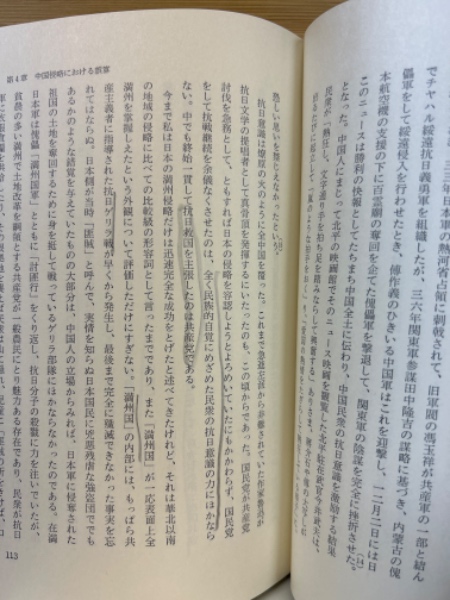 でチャハル綏遠抗日義勇軍を組織したが、三六年関東軍参謀田中隆吉の謀略に基づき、内蒙古の傀
儡軍をして綏遠侵入を行わせたとき、傅作義のひきいる中国軍はこれを迎撃し、一二月二日には日
本航空機の支援の下に百霊廟の奪回を企てた傀儡軍を撃退して、関東軍の陰謀を完全に挫折させた。(14)
このニュースは勝利の快報としてたちまち中国全土に伝わり、中国民衆の抗日意識を激励する結果
となった。中国人にまじって北平の映画館でそのニュース映画を観覧した北平駐在武官今井武夫は、
民衆が「熱狂し、文字通り手を拍ち足を踏みならして興奮する」ありさま、
熟しい思いを禁じえなかったという。
抗日意識は燎原の火のように全中国を覆った。これまで急進左派から非難されていた作家魯迅が
抗日文学の提唱者として真骨頂を発揮するにいたったのも、この頃からであった。国民党が共産党
討伐を急務として、ともすれば日本の侵略を容認しようとよろめいていたにもかかわらず、国民党
をして抗戦継続を余儀なくさせたのは、全く民族的自覚にめざめた民衆の抗日意識の力にほかなら
ない。中でも終始一貫して抗日救国を主張したのは共産党である。
今まで私は日本の満州侵略だけは迅速完全な成功をとげたと述べてきたけれど、それは華北以南
の地域の侵略に比べての比較級の形容詞として言ったまでであり、また「満州国」が一応表面上全
満州を掌握しえたという外観について評価しただけにすぎない。「満州国」の内部には、もっぱら共
産主義者に指導された抗日ゲリラ戦が早くから発生し、最後まで完全に殲滅できなかった事実を忘
れてはならぬ。日本側が当時「匪賊」と呼んで、実情を知らぬ日本国民に兇悪残虐な強盗団ででも
あるかのような錯覚を与えていたものの大部分は、中国人の立場からみれば、日本軍に侵奪された
祖国の土地を奪回するために身を挺して戦っているゲリラ部隊にほかならなかったのである。在満
日本軍は傀儡「満州国軍」とともに「討匪行」をくり返し、抗日分子の殺戮に力を注いでいたが、
貧農の多い満州で土地改革を綱領とする共産党が一般農民にとり魅力ある存在であり、民衆が抗日
第4章 中国侵略における
113